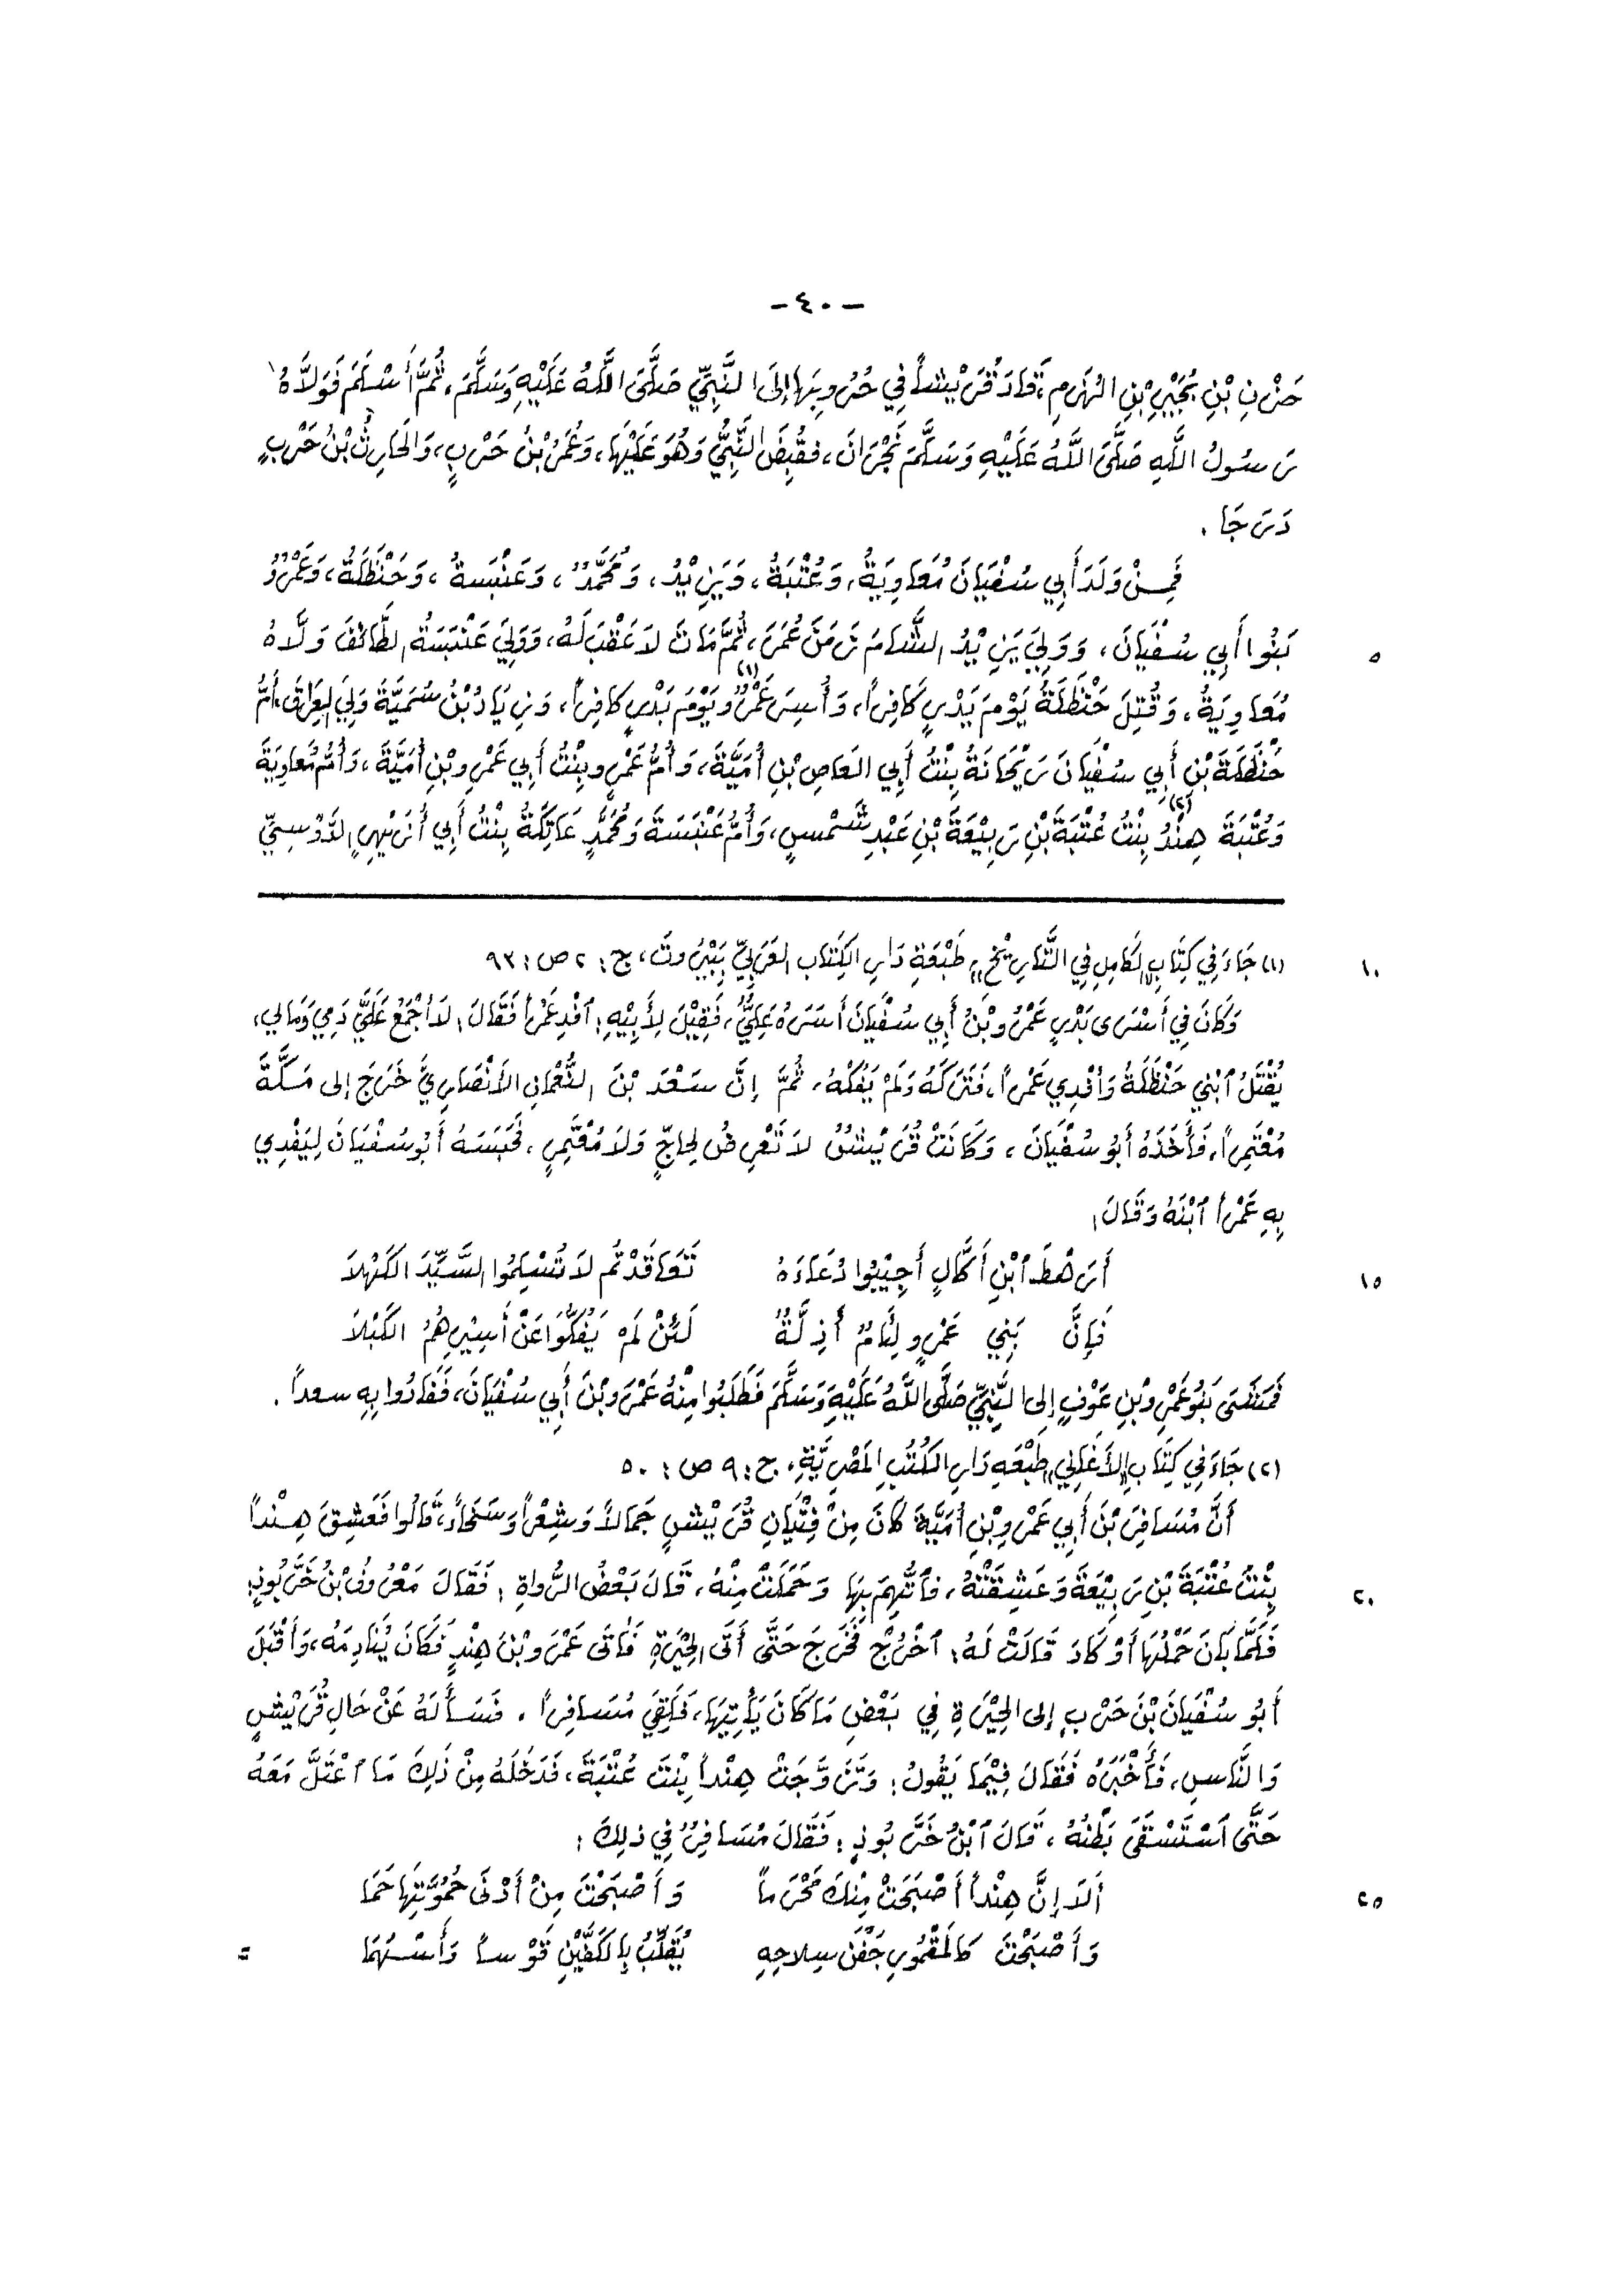 - ٤٠ -
حَزْنِ بْنِ بُجَيْرِ بْنِ الهُزَمِ، قَادَ قُرَيْشاً فِي حُرُوبِهَا إلَى النَّبِيِّ صَلَّى اللَّهُ عَلَيْهِ وَسَلَّمَ، ثُمَّ أَسْلَمَ فَوَلاَّهُ
رَسُولُ اللَّهِ صَلَّى اللَّهُ عَلَيْهِ وَسَلَّمَ نَجْرَانَ، فَقُبِضَ النَّبِيُّ وَهُوَ عَلَيْهَا، وَعُمَرُ بْنُ حَرْبٍ، وَالحَارِثُ بْنُ حَرْبٍ
دَرَجَا .
فَمِنْ وَلَدِ أَبِي سُفْيَانَ مُعَاوِيَةُ، وَعُتْبَةُ، وَيَزِيْدُ، وَمُحَمَّدٌ، وَعَنْبَسَةُ، وَحَنْظَلَةُ، وَعَمْرٌو
بَنُوا أَبِي سُفْيَانَ، وَوَلِيَ يَزِيْدُ الشَّامَ زَمَنَ عُمَرَ، ثُمَّ مَاتَ لاَ عَقْبَ لَهُ، وَوَلِيَ عَنْبَسَةُ الطَّائفَ وَلَّاهُ ٥
مُعَاوِيَةُ، وَقُتِلَ حَنْظَلَةُ يَوْمَ بَدْرٍ كَافِراً، وَأُسِرَ عَمْرٌو (١) يَوْمَ بَدْرٍ كَافِراً، وَزِيَادُ بْنُ سُمَيَّةَ وَلِيَ العِرَاقَ، أُمُّ
حَنْظَلَةَ بْنِ أَبِي سُفْيَانَ رَيْحَانَةُ بِنْتُ أَبِي العَاصِ بْنِ أُمَيَّةَ، وَأُمُّ عَمْرٍو بِنْتُ أَبِي عَمْرِو بْنِ أُمَيَّةَ، وَأُمُّ مُعَاوِيَةَ
وَعُتْبَةَ هِنْدُ (٢) بِنْتُ عُتْبَةَ بْنِ رَبِيْعَةَ بْنِ عَبْدِ شَمْسٍ، وَأُمُّ عَنْبَسَةَ وَمُحَمَّدٍ عَاتِكَةُ بِنْتُ أَبِي أُزَيْهِرٍ الدَّوْسِيِّ
(١) جَاءَ فِي كِتَابِ «الكَامِلِ فِي التَّارِيْخِ» طَبْعَةِ دَارِ الكِتَابِ العَرَبِيِّ بِبَيْرُوتَ، ج: ٢ ص: ٩٣ ١٠
وَكَانَ فِي أَسْرَى بَدْرٍ عَمْرُو بْنُ أَبِي سُفْيَانَ أَسَرَهُ عَلِيٌّ، فَقِيْلَ لِأَبِيْهِ: ٱفْدِ عَمْراً فَقَالَ: لاَ أجْمَعُ عَلَيَّ دَمِي وَمَالِي،
يُقْتَلُ ٱبْنِي حَنْظَلَةُ وَأفْدِي عَمْراً، فَتَرَكَهُ وَلَمْ يَفُكَّهُ، ثُمَّ إنَّ سَعْدَ بْنَ النُّعْمَانِ الأَنْصَارِيَّ خَرَجَ إلى مَكَّةَ
مُعْتَمِراً، فَأَخَذَهُ أَبُو سُفْيَانَ، وَكَانَتْ قُرَيْشٌ لاَ تَعْرِضُ لِحَاجٍّ وَلاَ مُعْتَمِرٍ، فَحَبَسَهُ أَبُو سُفْيَانَ لِيَفْدِي
بِهِ عَمْراً ٱبْنَهُ وَقَالَ:
أَرَهْطَ ٱبْنِ أَكَّالٍ أَجِيْبُوا دُعَاءَهُ تَعَاقَدْتُمُ لاَ تُسْلِمُوا السَّيِّدَ الكَهْلاَ ١٥
فَإِنَّ بَنِي عَمْرٍو لِئَامٌ أَذِلَّةٌ لَئِنْ لَمْ يَفُكُّوا عَنْ أَسِيْرِهُمُ الكَبْلاَ
فَمَشَى بَنُو عَمْرِو بْنِ عَوْفٍ إلى النَّبِيِّ صَلَّى اللَّهُ عَلَيْهِ وَسَلَّمَ فَطَلَبُوا مِنْهُ عَمْرَو بْنَ أَبِي سُفْيَانَ، فَفَادُوا بِهِ سعداً .
(٢) جَاءَ فِي كِتَابِ «الأَغَانِي» طَبْعَةِ دَارِ الكُتُبِ المَصْرِيَّةِ، ج: ٩ ص: ٥٠
أَنَّ مُسَافِرَ بْنَ أَبِي عَمْرِو بْنِ أُمَيَّةَ كَانَ مِنْ فِتْيَانِ قُرَيْشٍ جَمَالاً وَشِعْراً وَسَخَاءً، قَالُوا فَعَشِقَ هِنْداً
بِنْتَ عُتْبَةَ بْنِ رَبِيْعَةَ وَعَشِقَتْهُ، فَٱتُّهِمَ بِهَا وَحَمَلَتْ مِنْهُ، قَالَ بَعْضُ الرُّوَاةِ: فَقَالَ مَعْرُوفُ بْنُ خَرَّبُوذٍ: ٢٠
فَلَمَّا بَانَ حَمْلُهَا أَوْ كَادَ قَالَتْ لَهُ: ٱخْرُجْ فَخَرَجَ حَتَّى أَتَى الحِيْرَةَ فَأتَى عَمْرَو بْنَ هِنْدٍ فَكَانَ يُنَادِمُهُ، وَأَقْبَلَ
أَبُو سُفْيَانَ بْنَ حَرْبٍ إلى الحِيْرَةِ فِي بَعْضِ مَا كَانَ يَأْتِيْهَا، فَلَقِيَ مُسَافِراً . فَسَأَلَهُ عَنْ حَالِ قُرَيْشٍ
وَالنَّاسِ، فَأَخْبَرَهُ فَقَالَ فِيْمَا يَقُولُ: وَتَزَوَّجَتْ هِنْداً بِنْتَ عُتْبَةَ، فَدَخَلَهُ مِنْ ذَلِكَ مَا ٱعْتَلَّ مَعَهُ
حَتَّى ٱسْتَسْقَى بَطْنُهُ، قَالَ ٱبْنُ خَرَّبُوذٍ: فَقَالَ مُسَافِرٌ فِي ذلِكَ:
أَلاَ إنَّ هِنْداً أَصْبَحَتْ مِنْكَ مَحْرَماً وَأَصْبَحْتَ مِنْ أَدْنَى حُمُوَّتِهَا حَمَا ٢٥
وَأَصْبَحْتَ كَالمَقْمُورِ جَفْنَ سِلاحِهِ يُقَلِّبُ بِالكَفَّيْنِ قَوْساً وَأَسْهُمَا =